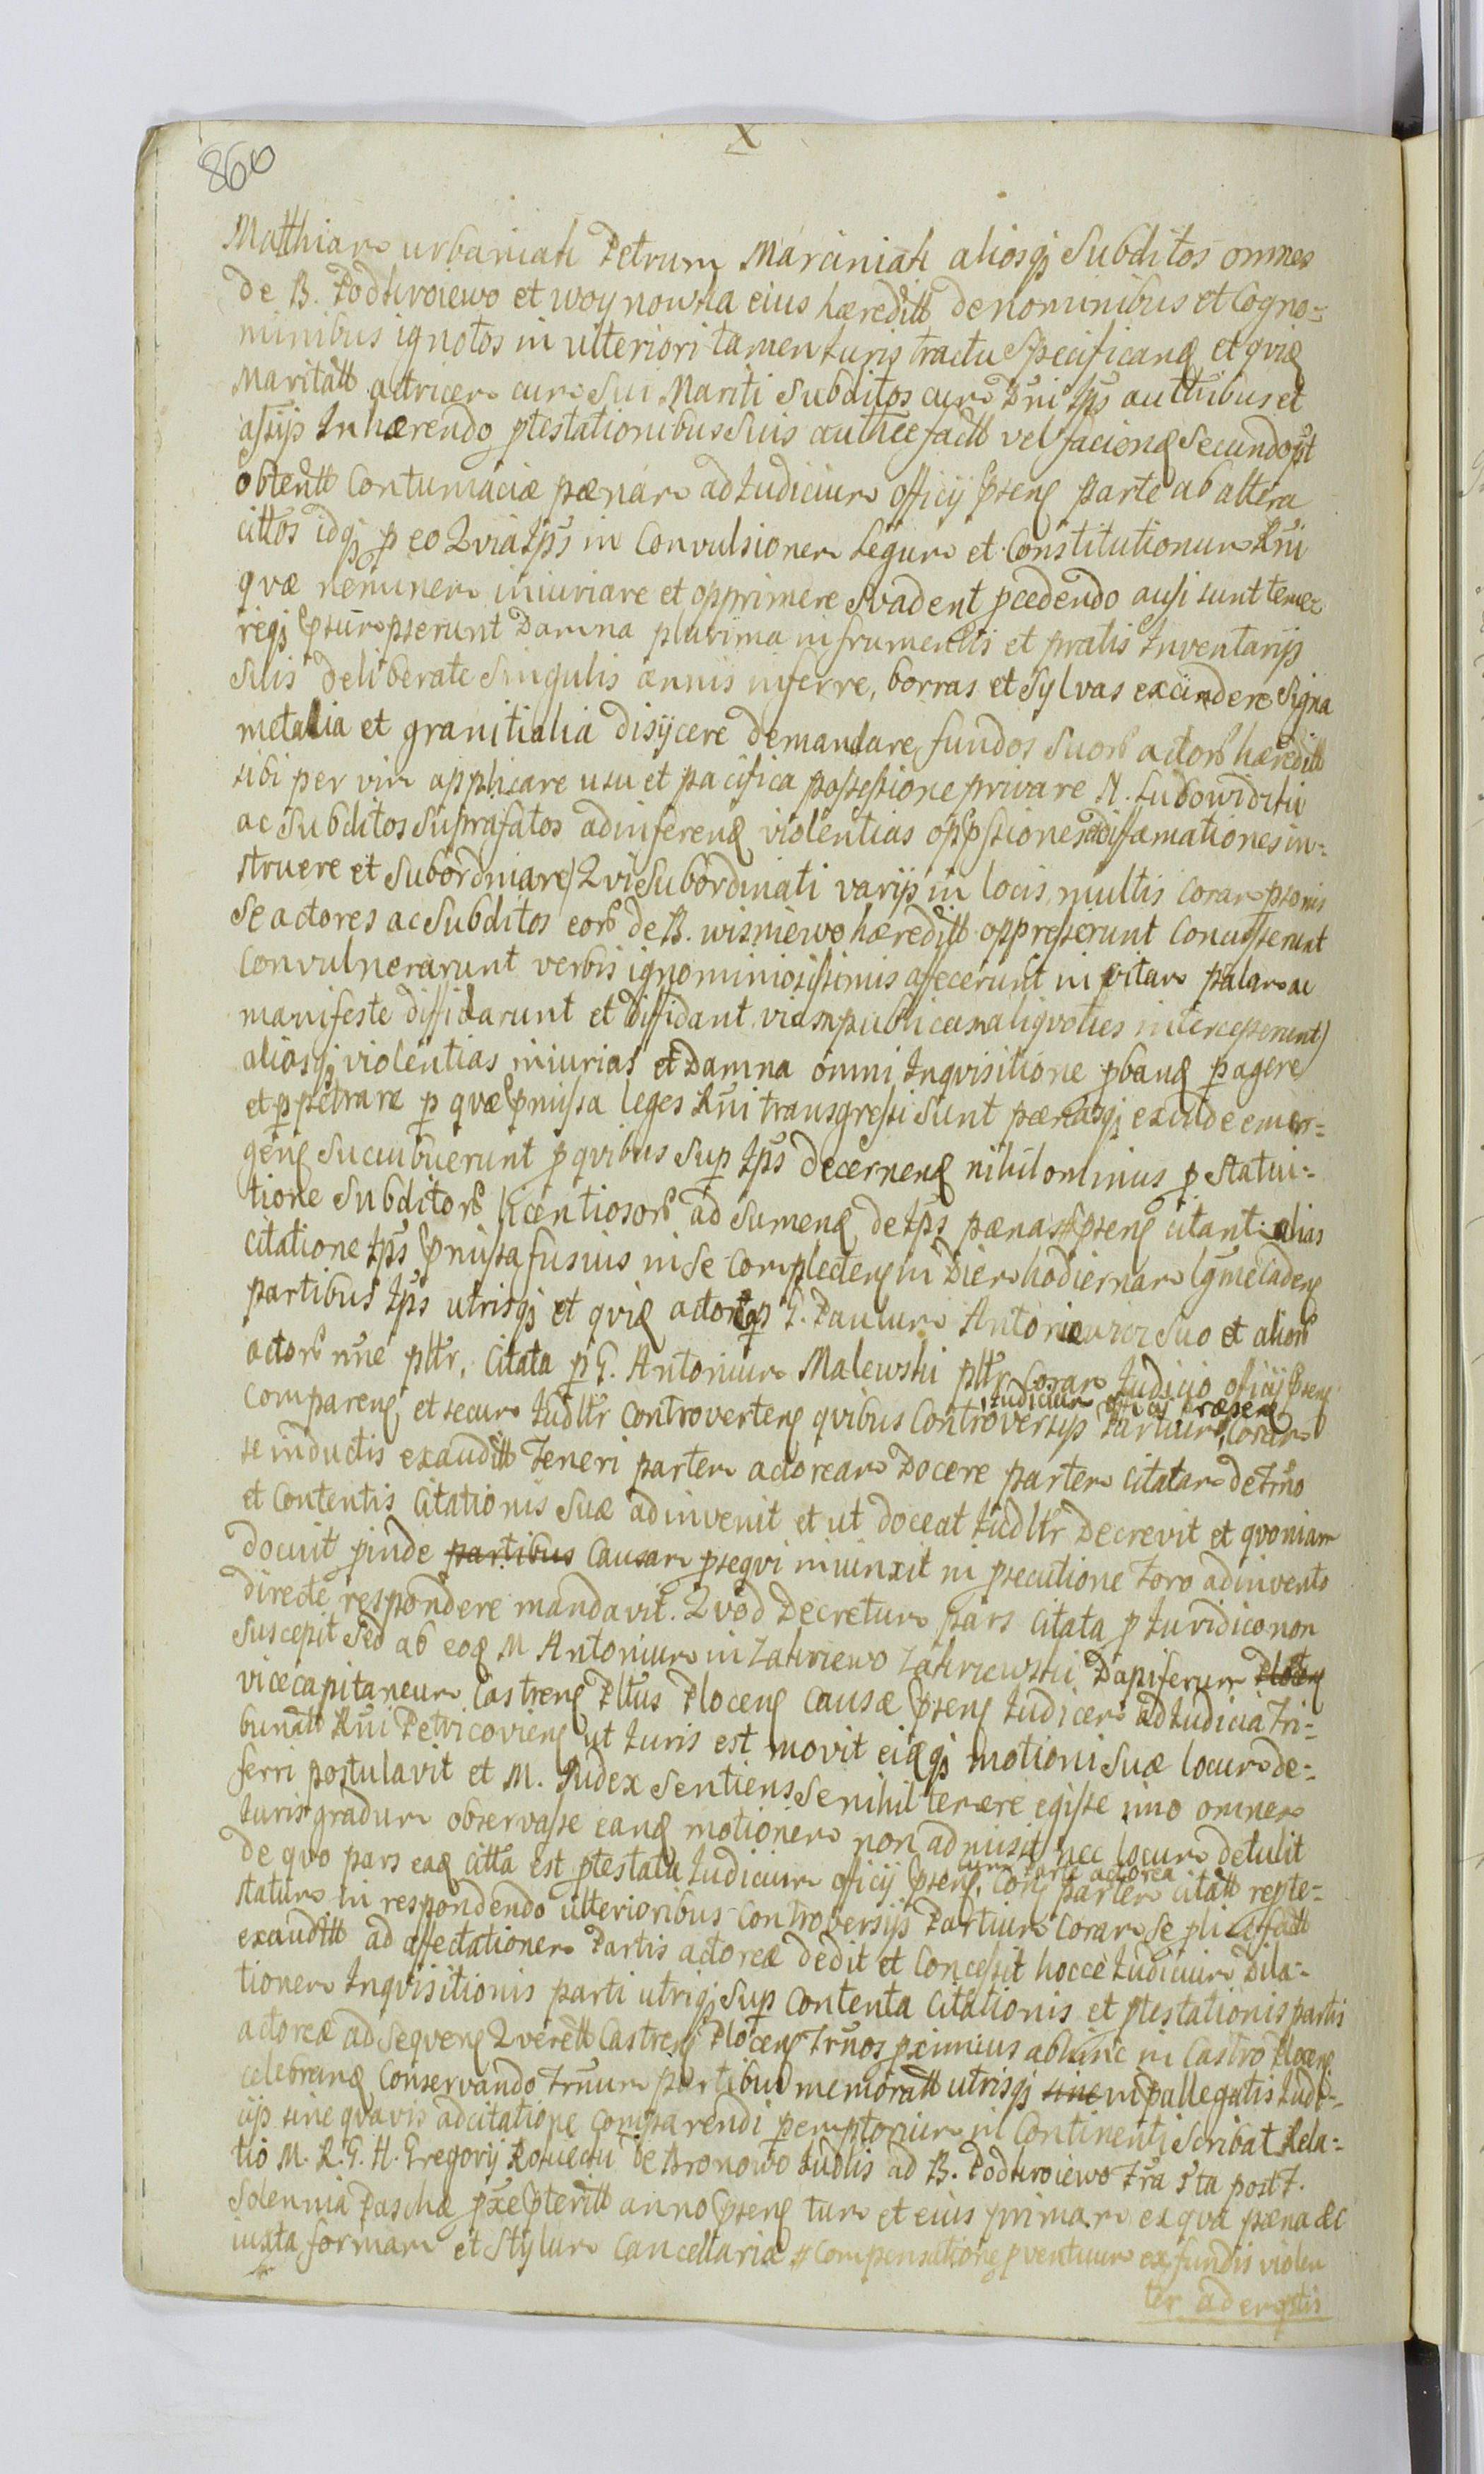 860
X
Matthiam urbaniak Petrum Marciniak aliosq; Subditos omnes
de B. Podkroiewo et woynowka eius hæreditt de nominibus et Cogno=
minibus ignotos in ulteriori tamen Iuris tractu Specificand et qvid
Maritatt actricem cum Sui Mariti Subditos cum Dni Ips authibus et
assijs Inhærendo ptestationibus Suis authce factt vel faciend Secundo pt
obtentt Contumaciæ pænam ad Iudicium officij pseng parte ab altera
cittos idq; p eo Qvia Ips in Convulsionem Legum et Constitutionum Rni
qvæ neminem iniuriare et opprimere Svadent pcedendo ausi sunt teme=
req; psumpserunt Damna plurima in frumentis et pratis Inventarijs
Suis deliberate Singulis annis inferre, borras et Sylvas excindere Signa
metalia et granitialia disijcere demandare fundos Suor actor hæreditt
sibi per vim applicare usu et pacifica possessione privare N. Ludowiditii
ac Subditos Suprafatos ad inferend violentias oppssiones diffamationes in=
struere et Subordinare Qvi Subordinati varijs in locis multis Coram psonis
Se actores ac Subditos eor de B. wisniewo hæreditt oppresserunt Concusserunt
Convulnerarunt verbis ignominiosissimis affecerunt in vitam palam ac
manifeste diffidarunt et diffidant viam publicam aliqvoties intercesserunt)
aliasq; violentias iniurias et Damna omni Inqvisitione pband pagere
et ppetrare p qvæ pmissa leges Rni transgressi Sunt pænasq; exinde emer=
geng Sucubuerunt p qvibus Sup Ips decernend nihilominus p Statui=
tione Subditor licentiosor ad Sumend de Ips pænas # pseng citant alias
Citatione Ips pmissa fusius in Se Complecteng in Diem hodiernam lgme Cadeng
partibus Ips utrisq; et qvid actor p G. Paulum Antoniewicz Suo et alior
actor nne pltr, Citata p G. Antonium Malewski pltr Coram Iudicio officij pseng
Compareng et secum Iudltr Controverteng qvibus Controversijs Partium, Coram
Iudicium officij præseng
se inductis exauditt Teneri partem actoream Docere partem Citatam de Trno
et Contentis Citationis Suæ adinvenit et ut doceat Iudltr Decrevit et qvoniam
docuit pinde partibus Causam pseqvi iniunxit in psecutione Foro adinvento
directe respondere mandavit. Qvod Decretum pars Citata p Iuridico non
Suscepit Sed ab eod M Antonium in Zakrzewo Zakrzewski Dapiferum Plociens
vicecapitaneum Castreng Pltus Ploceng Causæ pseng Iudicem ad Iudicia Tri=
bunatt Rni Petricovieng ut Iuris est movit eidq; motioni Suæ locum de=
ferri postulavit et M. Iudex Sentiens Se nihil temere egisse imo omnem
Iuris gradum observasse eand motionem non admisit nec locum detulit
de qvo pars ead citta est ptestata Iudicium officij pseng, Cum parte actorea
Cons partem citatt repte=
statum in respondendo ulterioribus Controversijs Partium Coram Se plice factt
exauditt ad affectationem Partis actoreæ dedit et Concessit hocce Iudicium Dila=
tionem Inqvisitionis parti utriq; Sup Contenta Citationis et ptestationis partis
actoreæ ad Seqveng Qverett Castreng Ploceng Trnos pximius abhinc in Castro Ploceng
celebrand Conservando Trnum partibus memoratt utrisq; sine in pallegatis Iudi=
cijs sine qvavis adcitatione Comparendi peremptorium in Continenti Scribat Rela=
tio M. R. G. H. Gregorij Kosuccki de Bronowo Iudlis ad B. Podkroiewo Fra 5ta post F.
Solennia Paschæ pxe pteritt anno pseng tum et eius primam ex qva pæna &c
iuxta formam et Stylum Cancellariæ # Compensatione pventuum ex fundis violen
ter ademptis